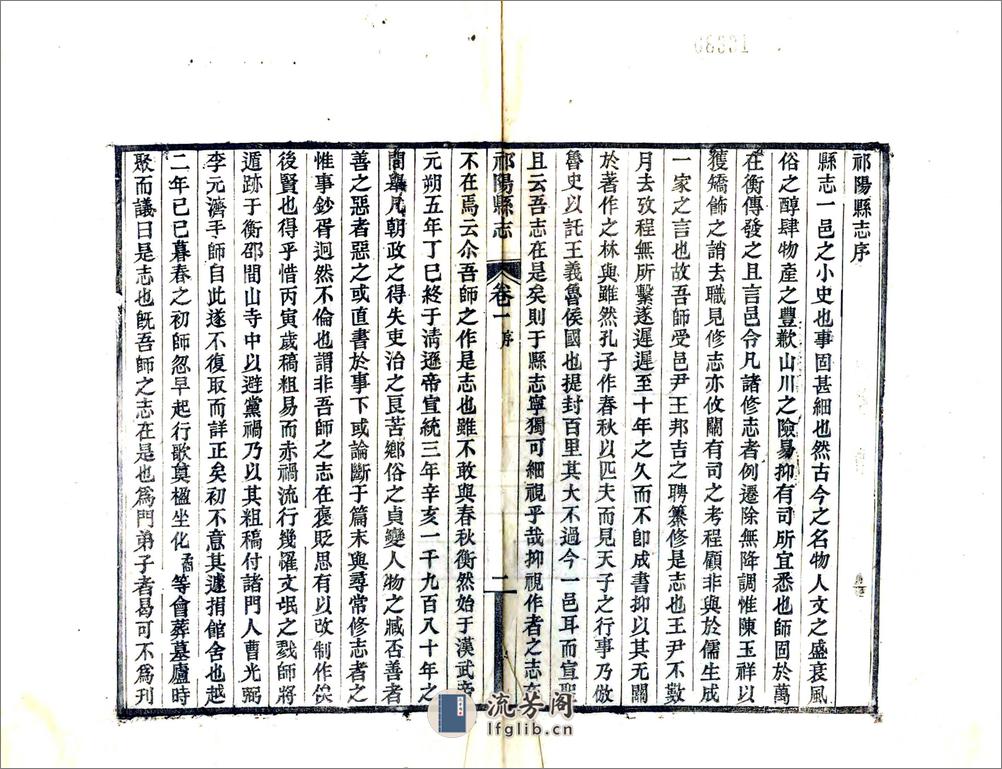 祁陽縣志序
縣志一邑之小史也事固甚細也然古今之名物人文之盛衰風
俗之醇肆物產之豐歉山川之險易抑有司所宜悉也師固於萬
在衡傳發之且言邑令凡諸修志者例遷除無降調惟陳玉祥以
獲矯飾之誚去職見修志亦攸關有司之考程顧非與於儒生成
一家之言也故吾師受邑尹王邦吉之聘纂修是志也王尹不數
月去攷程無所繫遂遲遲至十年之久而不卽成書抑以其无關
於著作之林與雖然孔子作春秋以匹夫而見天子之行事乃倣
魯史以託王義魯侯國也提封百里其大不過今一邑耳而宣聖
且云吾志在是矣則于縣志寧獨可細視乎哉抑視作者之志在
祁陽縣志 卷一 序 一
不在焉云尒吾師之作是志也雖不敢與春秋衡然始于漢武帝
元朔五年丁巳終于淸遜帝宣統三年辛亥一千九百八十年之
間舉凡朝政之得失吏治之良苦鄉俗之貞變人物之臧否善者
善之惡者惡之或直書於事下或論斷于篇末與尋常修志者之
惟事鈔胥迥然不倫也謂非吾師之志在褒貶思有以改制作俟
後賢也得乎惜丙寅歲稿粗易而赤禍流行幾罹文氓之戮師將
遁跡于衡邵間山寺中以避黨禍乃以其粗稿付諸門人曹光弼
李元濟手師自此遂不復取而詳正矣初不意其遽捐館舍也越
二年己巳暮春之初師忽早起行歌奠楹坐化 等會葬墓廬時
聚而議曰是志也旣吾師之志在是也爲門弟子者曷可不爲刋
流芳阁
lfglib.cn